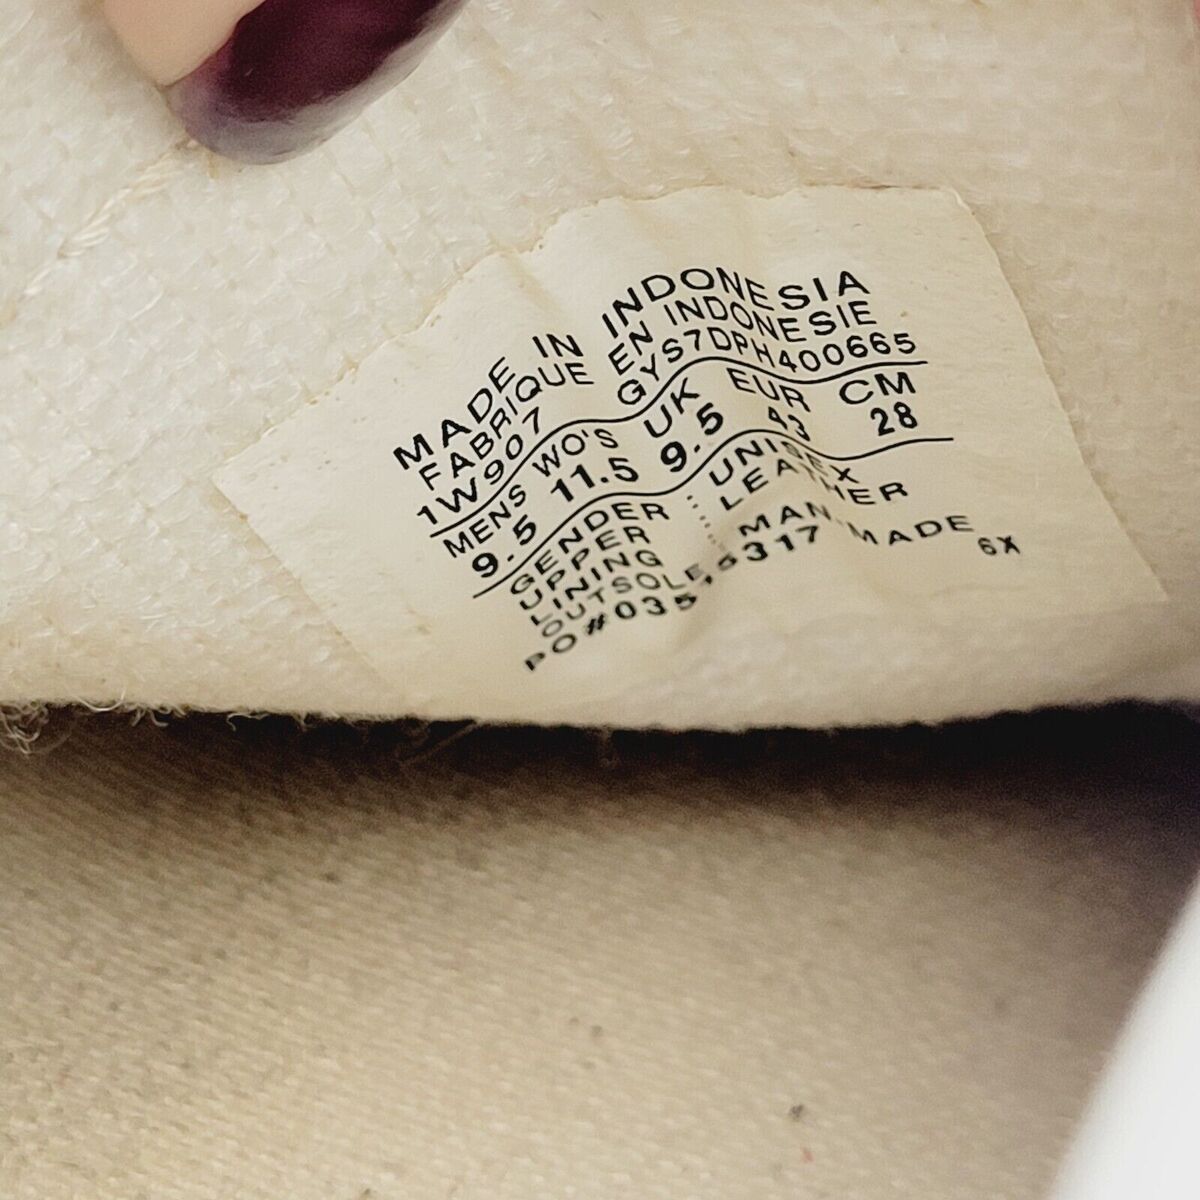 MADE IN INDONESIA
FABRIQUE EN INDONESIE
1W907 GYS7DPH400665
MENS WO'S UK EUR CM
9.5 11.5 9.5 43 28
GENDER UNISEX
UPPER LEATHER
LINING
OUTSOLE MAN-MADE
6X